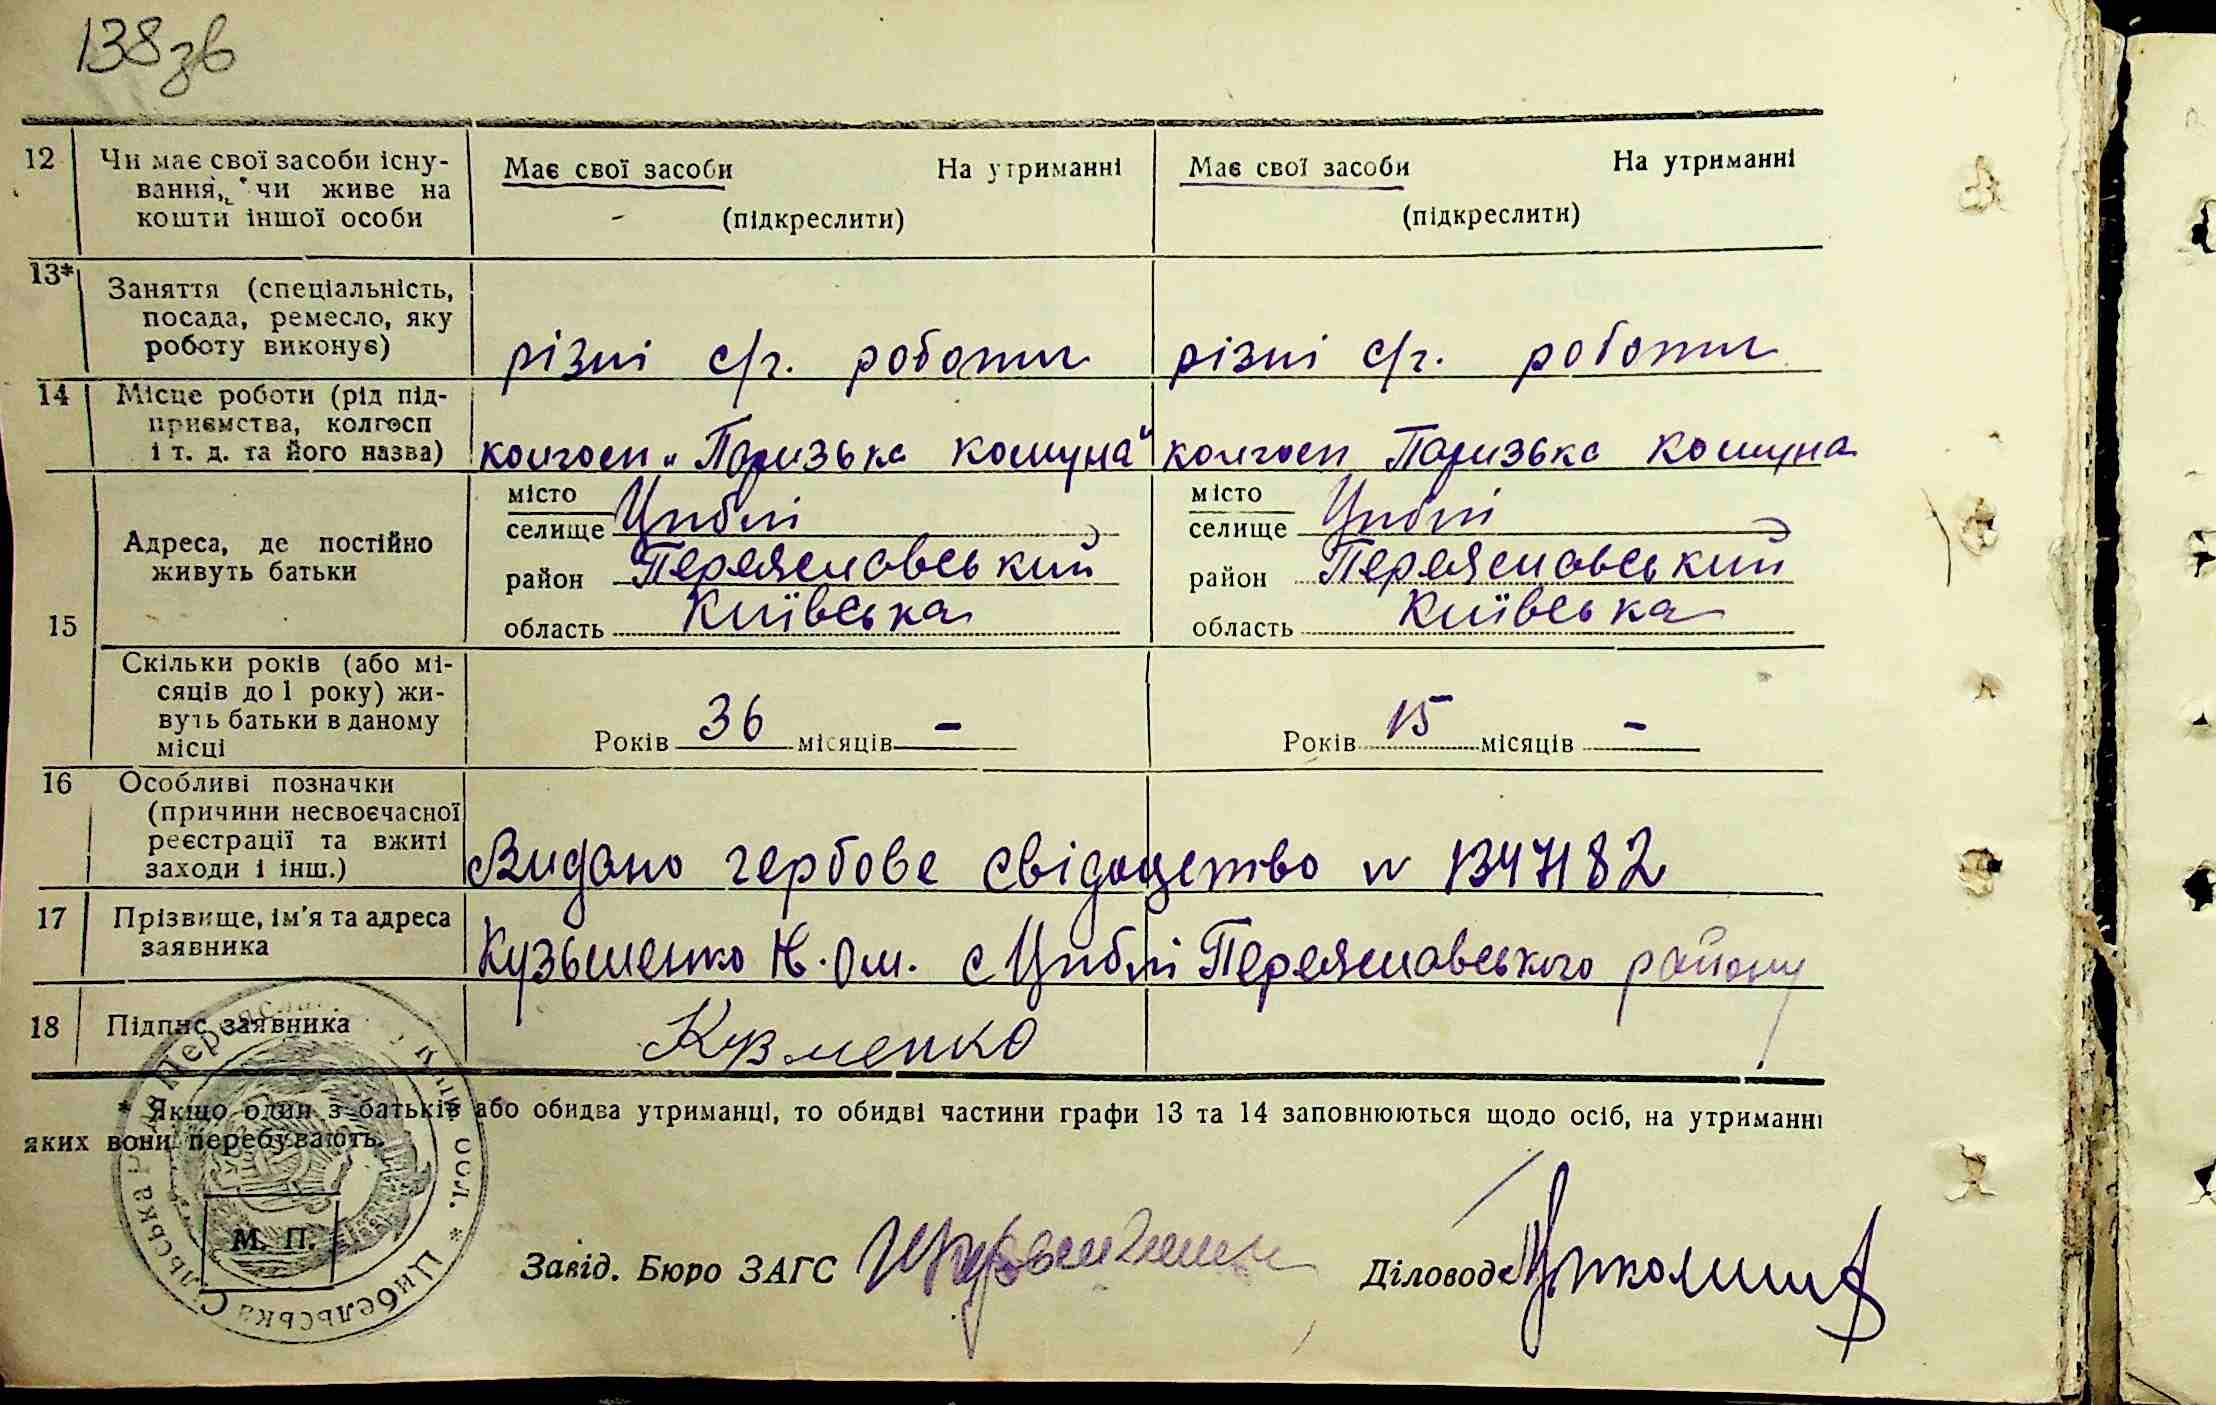 138зв
12 Чи має свої засоби існу- Має свої засоби На утриманні Має свої засоби На утриманні
вання, чи живе на
кошти іншої особи (підкреслити) (підкреслити)
13* Заняття (спеціальність,
посада, ремесло, яку
роботу виконує) різні с/г. роботи різні с/г. роботи
14 Місце роботи (рід під-
приємства, колгосп
і т. д. та його назва) колгосп „Паризька комуна“ колгосп Паризька комуна
15 Адреса, де постійно
живуть батьки
місто місто
селище Циблі селище Циблі
район Переяславський район Переяславський
область Київська область Київська
Скільки років (або мі-
сяців до 1 року) жи-
вуть батьки в даному
місці Років 36 місяців – Років 15 місяців –
16 Особливі позначки
(причини несвоєчасної
реєстрації та вжиті
заходи і інш.) Видано гербове свідоцтво N 1347182
17 Прізвище, ім'я та адреса
заявника Кузьменко Н. Ол. с Циблі Переяславського району
18 Підпис заявника Кузменко
* Якщо один з батьків або обидва утриманці, то обидві частини графи 13 та 14 заповнюються щодо осіб, на утриманні
яких вони перебувають.
М. П.
Завід. Бюро ЗАГС Діловод
Цибельська Сільська